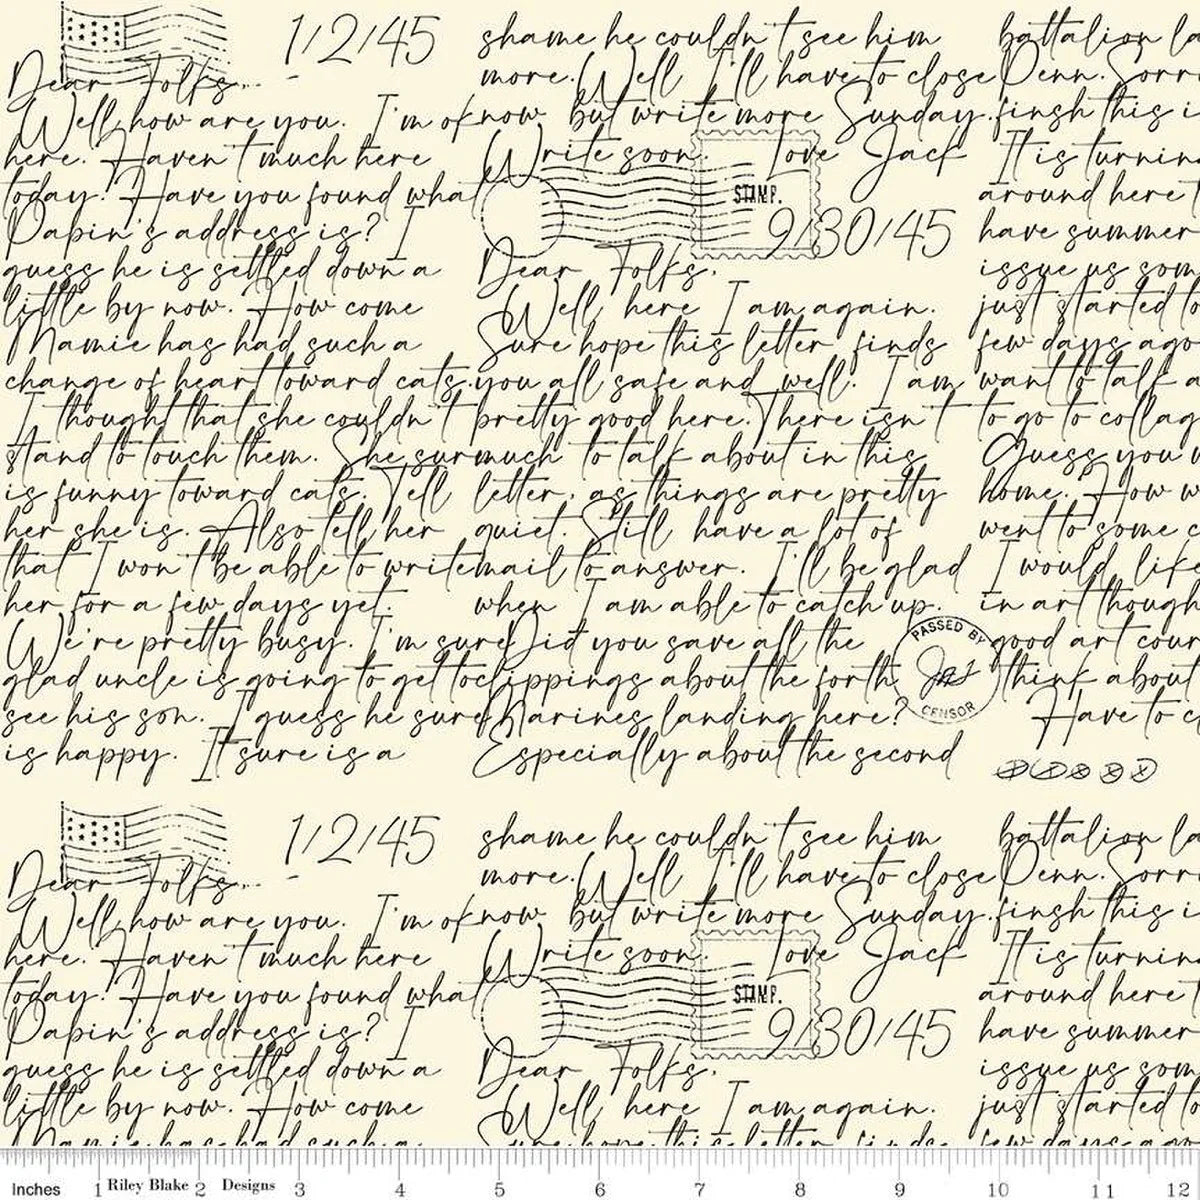 1/2/45
Dear Folks,..
Well how are you. I'm ok
here. Haven't much here
today. Have you found what
Dapin's address is? I
guess he is settled down a
little by now. How come
Mamie has had such a
change of heart toward cats.
I thought that she couldn't
stand to touch them. She sur
is funny toward cats. Tell
her she is. Also tell her
that I won't be able to write
her for a few days yet.
We're pretty busy. I'm sure
glad uncle is going to get to
see his son. I guess he sure
is happy. It sure is a
shame he couldn't see him
more. Well I'll have to close
now but write more Sunday.
Write soon. Love Jack
STAMP.
9/30/45
Dear Folks,
Well here I am again.
Sure hope this letter finds
you all safe and well. I am
pretty good here. There isn't
much to talk about in this
letter, as things are pretty
quiet. Still have a lot of
mail to answer. I'll be glad
when I am able to catch up.
Did you save all the
clippings about the forth
Marines landing here?
Especially about the second
PASSED BY
CENSOR
battalion la
Penn. Sorr
finsh this i
It is turnin
around here
have summer
issue us som
just started to
few days ago
want to talk a
to go to collag
Guess you w
home. How w
went to some c
I would like
in art though
good art cour
think about
Have to c
1/2/45
Dear Folks,..
Well how are you. I'm ok
here. Haven't much here
today. Have you found what
Dapin's address is? I
guess he is settled down a
little by now. How come
Mamie has had such a
shame he couldn't see him
more. Well I'll have to close
now but write more Sunday.
Write soon. Love Jack
STAMP.
9/30/45
Dear Folks,
Well here I am again.
Sure hope this letter finds
battalion la
Penn. Sorr
finsh this i
It is turnin
around here
have summer
issue us som
just started to
few days ago
Inches 1 Riley Blake 2 Designs 3 4 5 6 7 8 9 10 11 12